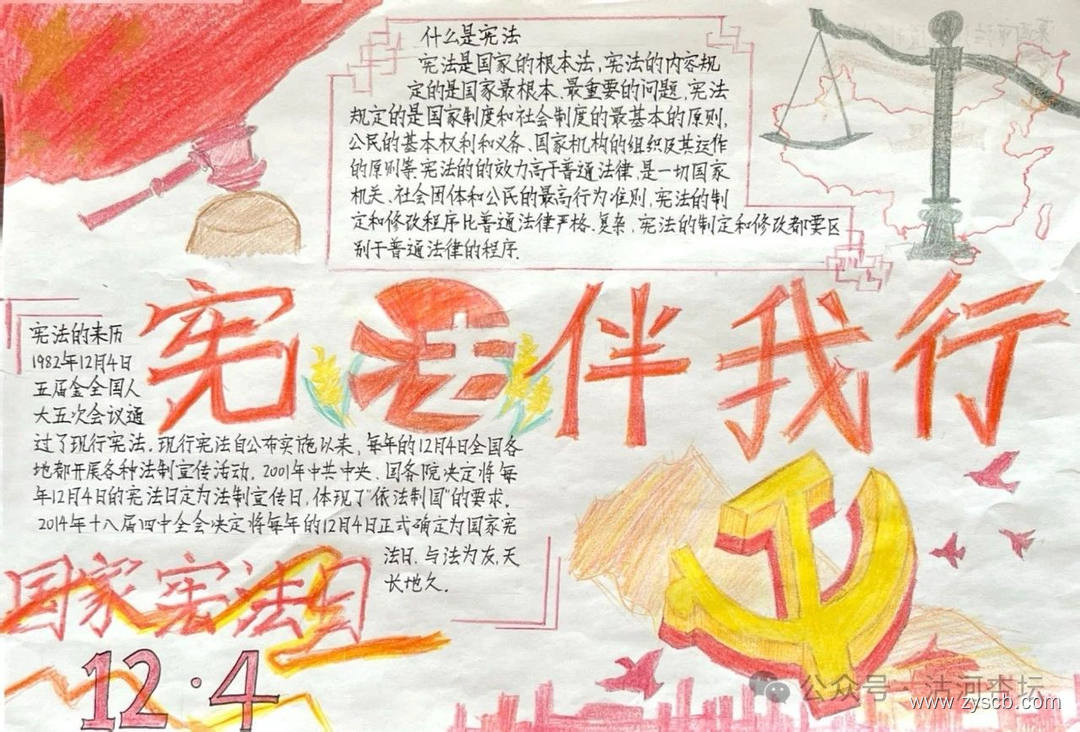 什么是宪法
宪法是国家的根本法,宪法的内容规
定的是国家最根本、最重要的问题,宪法
规定的是国家制度和社会制度的最基本的原则,
公民的基本权利和义务、国家机构的组织及其运作
的原则等.宪法的的效力高于普通法律,是一切国家
机关、社会团体和公民的最高行为准则,宪法的制
定和修改程序比普通法律严格.复杂,宪法的制定和修改都要区
别于普通法律的程序.
宪法伴我行
宪法的来历
1982年12月4日
五届金全国人
大五次会议通
过了现行宪法.现行宪法自公布实施以来,每年的12月4日全国各
地都开展各种法制宣传活动。2001年中共中央、国务院决定将每
年12月4日的宪法日定为法制宣传日,体现了“依法制国”的要求。
2014年十八届四中全会决定将每年的12月4日正式确定为国家宪
法日.与法为友,天
长地久.
国家宪法日
12·4
公众号 沽河杏坛
www.zyscb.com